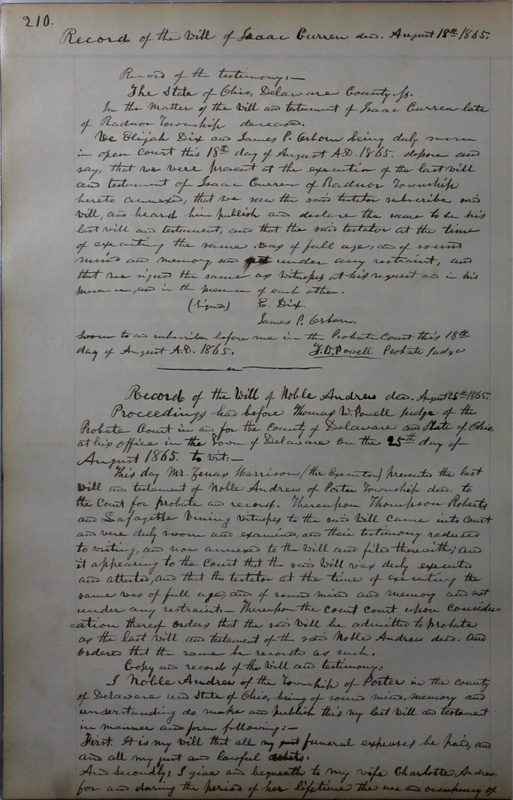 210.
Record of the Will of Isaac Curren decd. August 18th 1865.
Record of the testimony:—
The State of Ohio, Delaware County, ss.
In the Matter of the Will and testament of Isaac Curren late
of Radnor Township deceased.
We Elijah Dix and James P. Osborn being duly sworn
in open Court this 18th day of August A.D. 1865. depose and
say, that we were present at the execution of the last Will
and testament of Isaac Curren of Radnor Township
hereto annexed; that we saw the said testator subscribe said
will, and heard him publish and declare the same to be his
last will and testament, and that the said testator at the time
of executing the same was of full age, and of sound
mind and memory and not under any restraint, and
that we signed the same as witnesses at his request and in his
presence, and in the presence of each other.
(Signed) E. Dix.
James P. Osborn.
Sworn to and subscribed before me in the Probate Court this 18th
day of August A.D. 1865. T. W. Powell Probate Judge
Record of the Will of Noble Andrew decd. August 25th 1865.
Proceedings had before Thomas W. Powell Judge of the
Probate Court in and for the County of Delaware and State of Ohio
at his office in the Town of Delaware on the 25th day of
August 1865. to wit:—
This day Mr. Zenas Harrison (the Executor) presents the last
Will and testament of Noble Andrew of Porter Township decd. to
the Court for probate and record. Thereupon Thompson Roberts
and Lafayette Vining witnesses to the said Will came into Court
and were duly sworn and examined, and their testimony reduced
to writing, and now annexed to the Will and filed therewith; and
it appearing to the Court that the said Will was duly executed
and attested, and that the testator at the time of executing the
same was of full age, and of sound mind and memory and not
under any restraint.— Thereupon the Court Court upon consider-
=cation thereof orders that the said Will be admitted to probate
as the last Will and testament of the said Noble Andrew decd. And
ordered that the same be recorded as such.
Copy and record of the Will and testimony.
I Noble Andrew of the Township of Porter in the County
of Delaware and State of Ohio, being of sound mind, memory and
understanding do make and publish this my last Will and testament
in manner and form following:—
First. It is my will that all my funeral expenses be paid, and
and all my just and lawful debts.
And Secondly; I give and bequeath to my wife Charlotte Andrew,
for and during the period of her lifetime the use and occupancy of